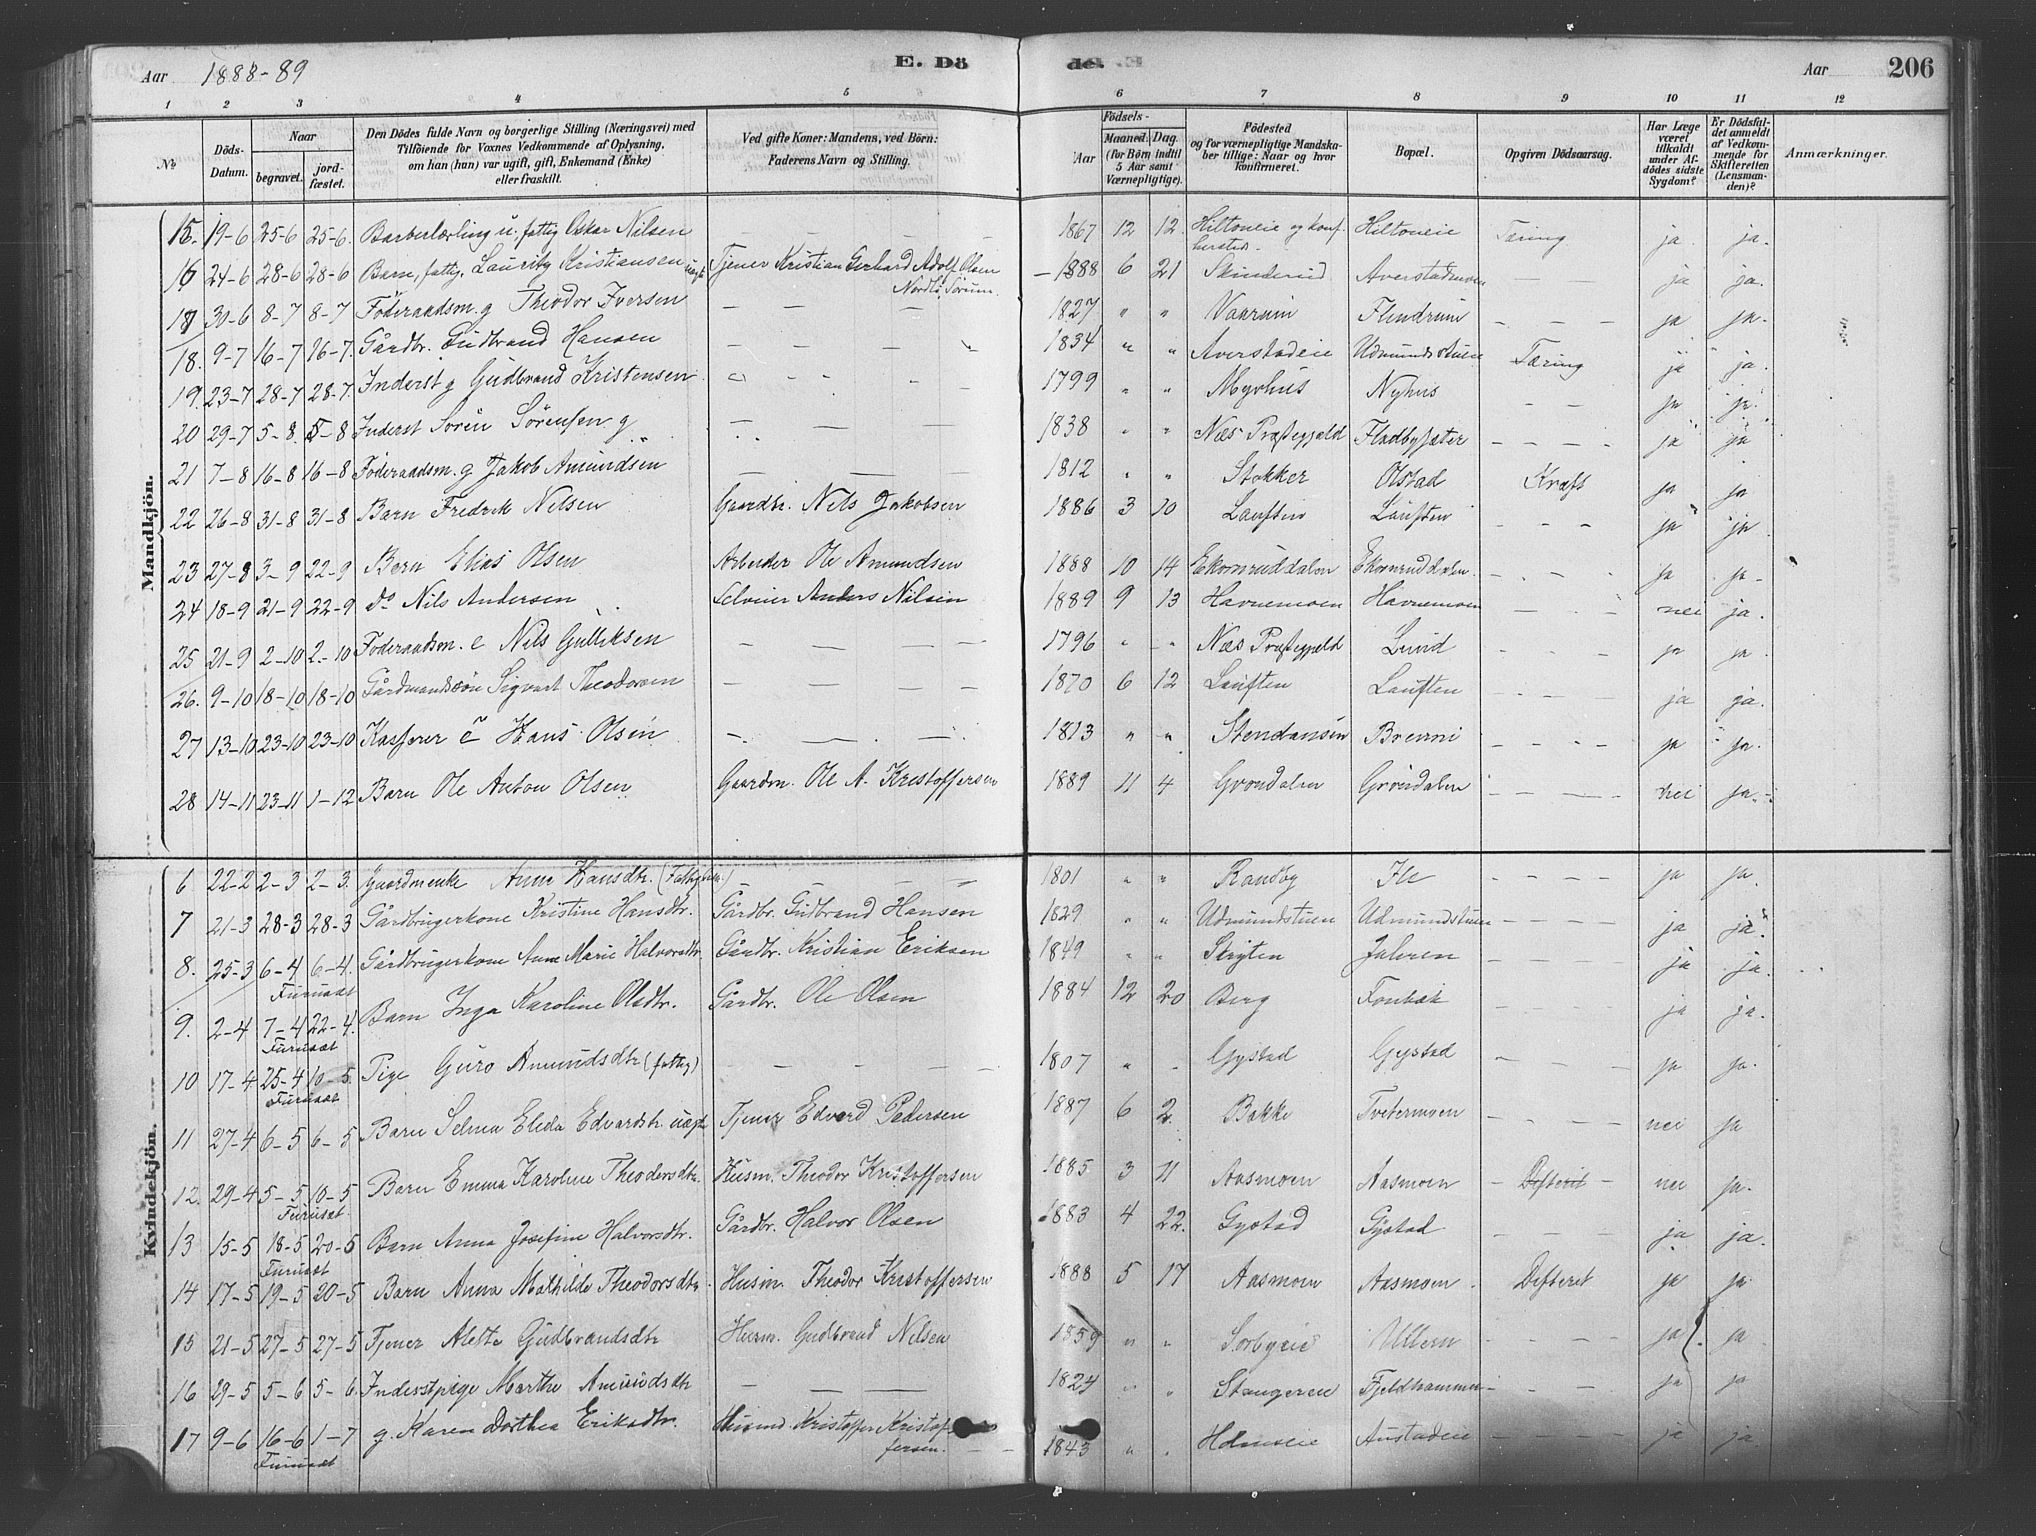 Aar 1888-89 E. Dö de. Aar 206
1 2 3 4 5 6 7 8 9 10 11 12
№ Döds-Datum. Naar begravet. jordfæstet. Den Dödes fulde Navn og borgerlige Stilling (Næringsvei) med Tilföiende for Voxnes Vedkommende af Oplysning, om han (han) var ugift, gift, Enkemand (Enke) eller fraskilt. Ved gifte Koner: Mandens, ved Börn: Faderens Navn og Stilling. Födsels- Aar Maaned. Dag. (for Börn indtil 5 Aar samt Værnepligtige). Födested og for værnepligtige Mandskaber tillige: Naar og hvor konfirmeret. Bopæl. Opgiven Dödsaarsag. Har Læge været tilkaldt under Afdödes sidste Sygdom? Er Dödsfaldet anmeldt af Vedkommende for Skifteretten (Lensmanden)? Anmærkninger.
Mandkjön.
15. 19-6 25-6 25-6. Barberlærling u., fattig Oskar Nilsen — — — 1867 12 12. Hiltoneie og konf. Hiltoneie Tæring ja ja.
16 24-6 28-6 28-6 Barn, fattig, Lauritz Kristiansen uægte Tjener Kristian Gerhard Adolf Olsen Nordli, Sörum. 1888 6 21 Skinderud Averstadmoen — — ja ja.
17 30-6 8-7 8-7 Föderaadsm. g Theodor Iversen — — — — 1827 " " Vaarum Flendrum — — — ja ja.
18. 9-7 16-7 16-7. Gårdbr. Gudbrand Hansen — — — 1834 " " Averstadeie Udmundstuen Tæring ja ja.
19. 23-7 28-7 28-7. Inderst g Gudbrand Kristensen — — — 1799 " " Myrhus Nyhus — — ja ja.
20 29-7 5-8. 5-8 Inderst Sören Sörensen g — — — 1838 " " Næs Præstegjeld Fladbysæter — — — — ja ja
21 7-8 16-8 16-8 Föderaadsm. g Jakob Amundsen — — — 1812 " " Stokker Olstad Kræft ja ja
22 26-8 31-8 31-8 Barn Fredrik Nilsen Gaardbr. Nils Jakobsen 1886 3 10 Lauften Lauften — — — ja ja
23 27-8 3-9 22-9 Barn Elias Olsen Arbeider Ole Amundsen 1888 10 14 Ekornruddalen Ekornruddalen. — — — ja ja
24 18-9 21-9 22-9 do Nils Andersen Selveier Anders Nilsen 1889 9 13 Havnemoen Havnemoen — — — nei ja.
25 21-9 2-10 2-10 Föderaadsm. e Nils Gulliksen — — — — 1796 " " Næs Præstegjæld Lund — — — ja ja.
26. 9-10 18-10 18-10 Gårdmandssön Sigvart Theodorsen — — — — 1870 6 12 Lauften Lauften — — — ja ja.
27 13-10 23-10 23-10 Kasserer e Hans Olsen — — — 1813 " " Stendansen Bremni — — — ja ja.
28 14-11 23-11 1-12 Barn Ole Anton Olsen Gaardm. Ole A. Kristoffersen 1889 11 4 Gröndalen Gröndalen — — — — nei ja.
Kvindekjön.
6 22-2 2-3 2-3. Gaardmenke Anne Hansdtr. — — — 1801 " " Randby Ile — — — — ja ja.
7 21-3 28-3 28-3 Gårdbrugerkone Kristine Hansdtr. Gårdbr. Gudbrand Hansen 1829 " " Udmundstuen Udmundstuen — — — — ja ja.
8. 25-3 6-4 6-4. Gårdbrugerkone Anne Marie Halvorsdtr. Gårdbr. Kristian Eriksen 1849 " " Skryten Jaleren — — — — ja ja.
Furusæt
9. 2-4 7-4 22-4. Barn Inga Karoline Olsdtr. Gårdbr. Ole Olsen 1884 12 20 Berg Fonbæk — — — ja ja.
Furusæt
10 17-4 25-4 10-5. Pige Guro Amundsdtr (fattig) — — — — 1807 " " Gystad Gystad — — — ja ja.
Furusæt
11 27-4 6-5 6-5 Barn Selma Eleda Edvardsdtr. uægte Tjener Edvard Pedersen 1887 6 2 Bakke Tvetermoen — — — nei ja
12. 29-4 5-5 10-5 Barn Emma Karoline Theodorsdtr. Husm. Theodor Kristoffersen 1885 3 11 Aasmoen Aasmoen — Defterit — nei ja.
Furusæt.
13 15-5 18-5 20-5 Barn Anna Josefine Halvorsdtr. Gårdbr. Halvor Olsen 1883 4 22. Gystad Gystad — — — — ja ja.
Furusæt
14 17-5 19-5 20-5 Barn Anna Mathilde Theodorsdtr. Husm. Theodor Kristoffersen 1888 5 17 Aasmoen Aasmoen. Defteret ja ja
15 21-5 27-5 27-5 Tjener Alette Gudbrandsdtr Husm. Gudbrand Nilsen 1859 " " Sorbyeie Ultern — — — ja ja
16 29-5 5-6 5-6. Inderstpige Marthe Amundsdtr — — — 1824 " " Stangereie Fjeldhammer — — — ja ja
17 9-6 16-6 1-7 g. Karen Dorthea Eriksdtr. Husmd. Kristoffer Kristoffersen. — — 1843 " " Holmseie Austadeie — — — ja ja
Furusæt